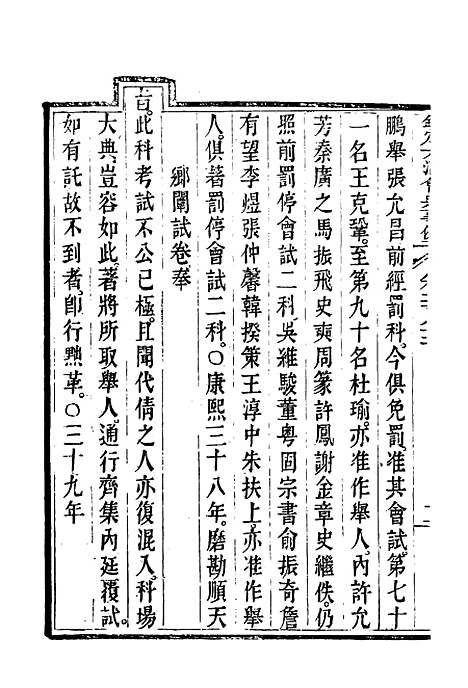 鵬舉張允昌前經罰科。今俱免罰。准其會試。第七十
一名王克鞏。至第九十名杜瑜。亦准作舉人。內許允
芳秦廣之馬振飛史奭周篆許鳳謝金章史繼佚。仍
照前罰停會試二科。吳維駿董粤固宗書俞振奇詹
有望李煜張仲馨韓揆策王淳中朱扶上。亦准作舉
人。俱著罰停會試二科。○康熙三十八年。磨勘順天
鄉闈試卷奉
旨。此科考試不公已極。且聞代倩之人亦復混入。科場
大典。豈容如此。著將所取舉人。通行齊集內廷覆試。
如有託故不到者。卽行黜革。○三十九年